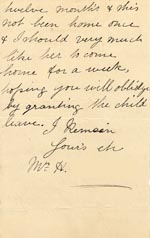 twelve months & this
not been home once
& I should very much
like her to come
home for a week,
hoping you will oblidge
by granting the child
leave. I Remain
Yours etc
Mrs H.